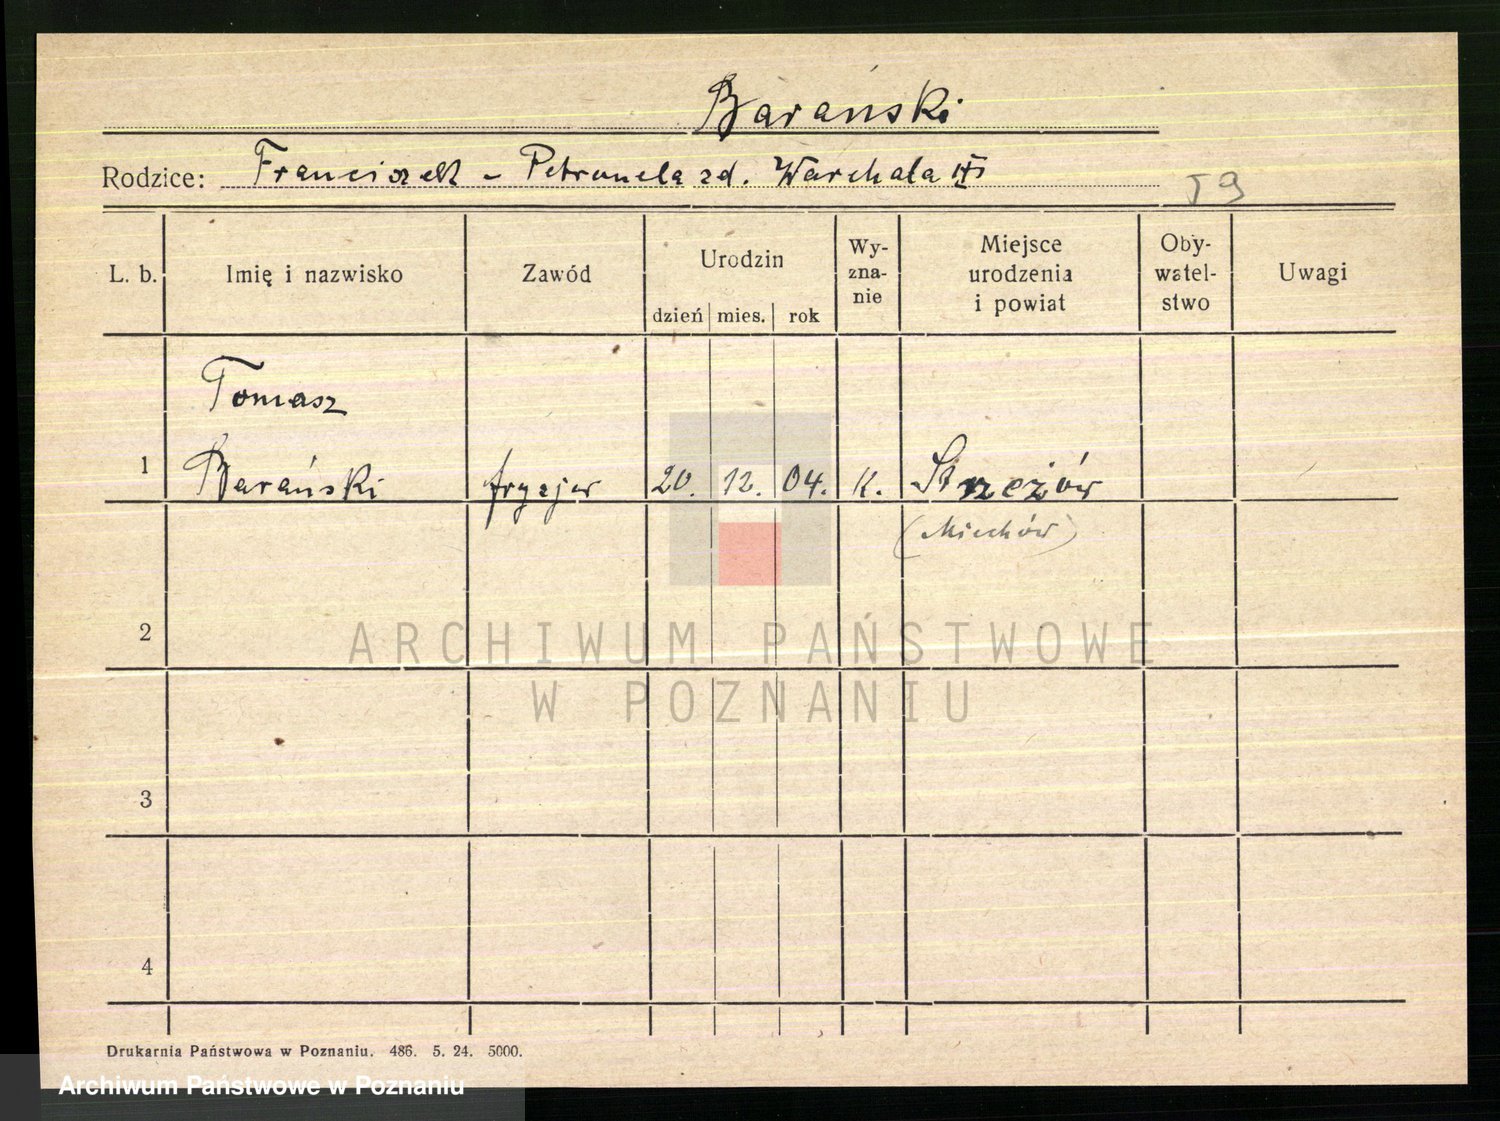 Barański
Rodzice: Franciszek - Petronela zd. Warchala
59
L. b. Imię i nazwisko Zawód Urodzin dzień mies. rok Wy-zna-nie Miejsce urodzenia i powiat Oby-watel-stwo Uwagi
Tomasz
1 Barański fryzjer 20. 12. 04. K. Strzeżów
(Miechów)
2
ARCHIWUM PAŃSTWOWE
W POZNANIU
3
4
Drukarnia Państwowa w Poznaniu. 486. 5. 24. 5000.
Archiwum Państwowe w Poznaniu